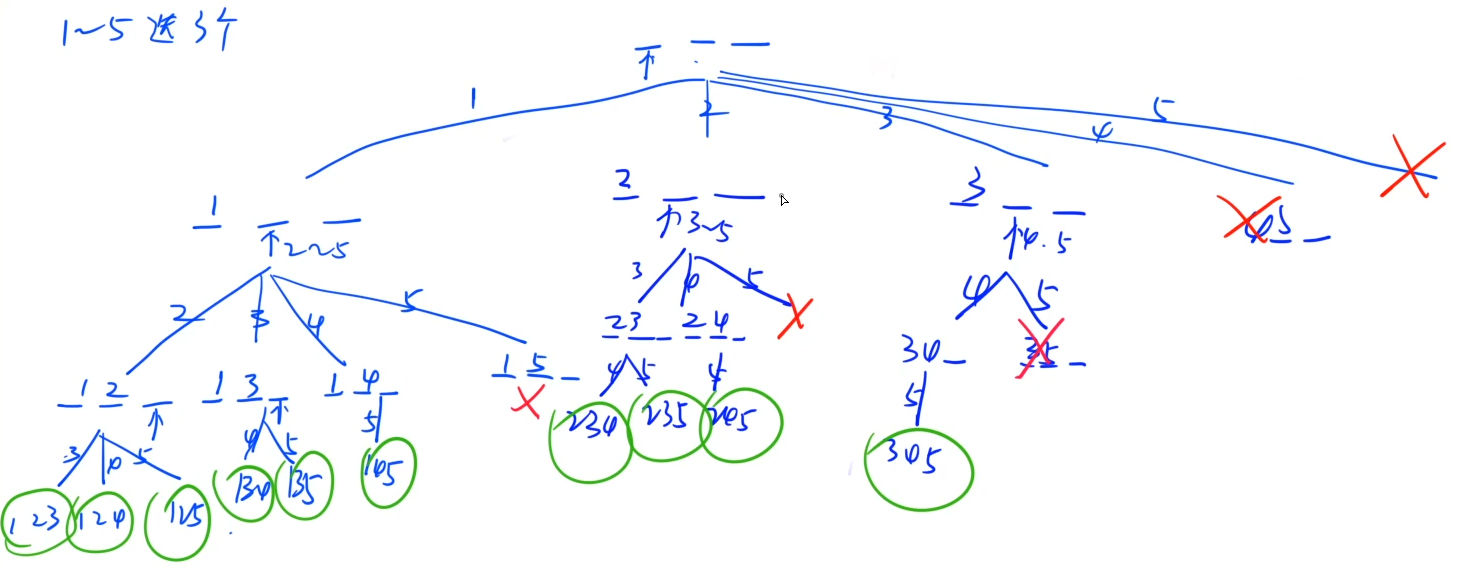 1~5 选 3个
1
2
3
4
5
1
2~5
2
3~5
3
4.5
45
2
3
4
5
3
4
5
4
5
1 2
1 3
1 4
1 5
2 3
2 4
3 4
3 5
3
4
5
4
5
5
4
5
5
5
1 2 3
1 2 4
1 2 5
1 3 4
1 3 5
1 4 5
2 3 4
2 3 5
2 4 5
3 4 5